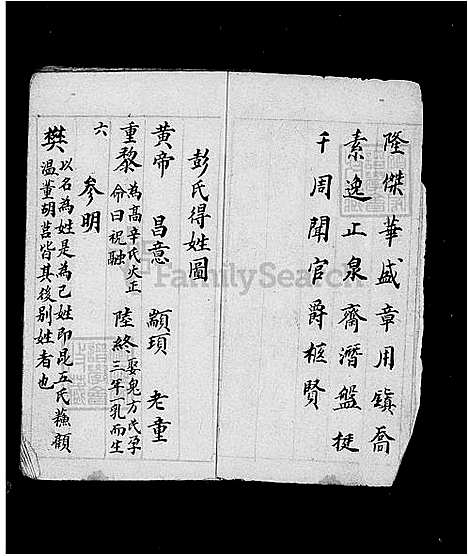 隆傑華盛章用鎮喬
素逸正泉齋潛盤挺
千周聞官爵樞賢
彭氏得姓圖
黃帝 昌意 顓頊 老童
重黎 為高辛氏火正
命曰祝融 陸終 娶鬼方氏孕
三年一乳而生
六
參明
樊 以名為姓是為己姓即昆吾氏蘇顧
溫董胡莒皆其後別姓者也
FamilySearch